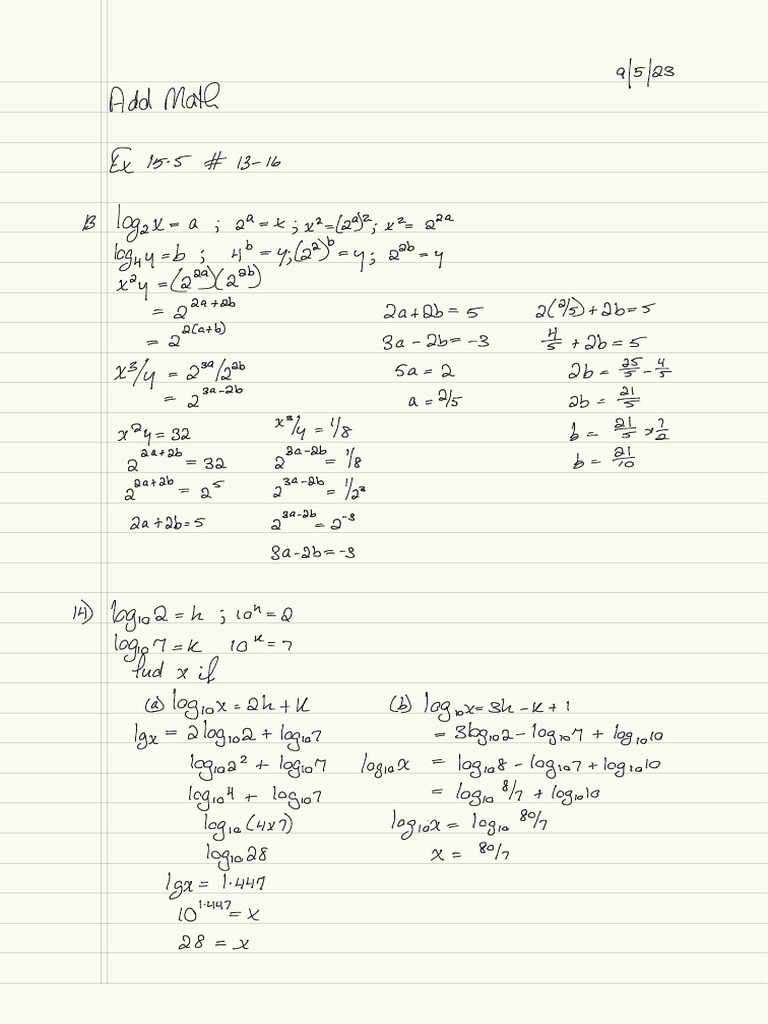 9/5/23
Add Math
Ex 15.5 # 13-16
13 log₂x = a ; 2ᵃ = x ; x² = (2ᵃ)² ; x² = 2²ᵃ
log₄y = b ; 4ᵇ = y ; (2²)ᵇ = y ; 2²ᵇ = y
x²y = (2²ᵃ)(2²ᵇ)
= 2²ᵃ⁺²ᵇ
= 2²⁽ᵃ⁺ᵇ⁾
x³/y = 2³ᵃ/2²ᵇ
= 2³ᵃ⁻²ᵇ
x²y = 32
2²ᵃ⁺²ᵇ = 32
2²ᵃ⁺²ᵇ = 2⁵
2a + 2b = 5
x³/y = 1/8
2³ᵃ⁻²ᵇ = 1/8
2³ᵃ⁻²ᵇ = 1/2³
2³ᵃ⁻²ᵇ = 2⁻³
3a - 2b = -3
2a + 2b = 5
3a - 2b = -3
5a = 2
a = 2/5
2(2/5) + 2b = 5
4/5 + 2b = 5
2b = 25/5 - 4/5
2b = 21/5
b = 21/5 × 1/2
b = 21/10
14) log₁₀2 = h ; 10ʰ = 2
log₁₀7 = k 10ᵏ = 7
find x if
(a) log₁₀x = 2h + k
lgx = 2log₁₀2 + log₁₀7
log₁₀2² + log₁₀7
log₁₀4 + log₁₀7
log₁₀(4x7)
log₁₀28
lgx = 1.447
10¹·⁴⁴⁷ = x
28 = x
(b) log₁₀x = 3h - k + 1
= 3log₁₀2 - log₁₀7 + log₁₀10
log₁₀x = log₁₀8 - log₁₀7 + log₁₀10
= log₁₀ 8/7 + log₁₀10
log₁₀x = log₁₀ 80/7
x = 80/7